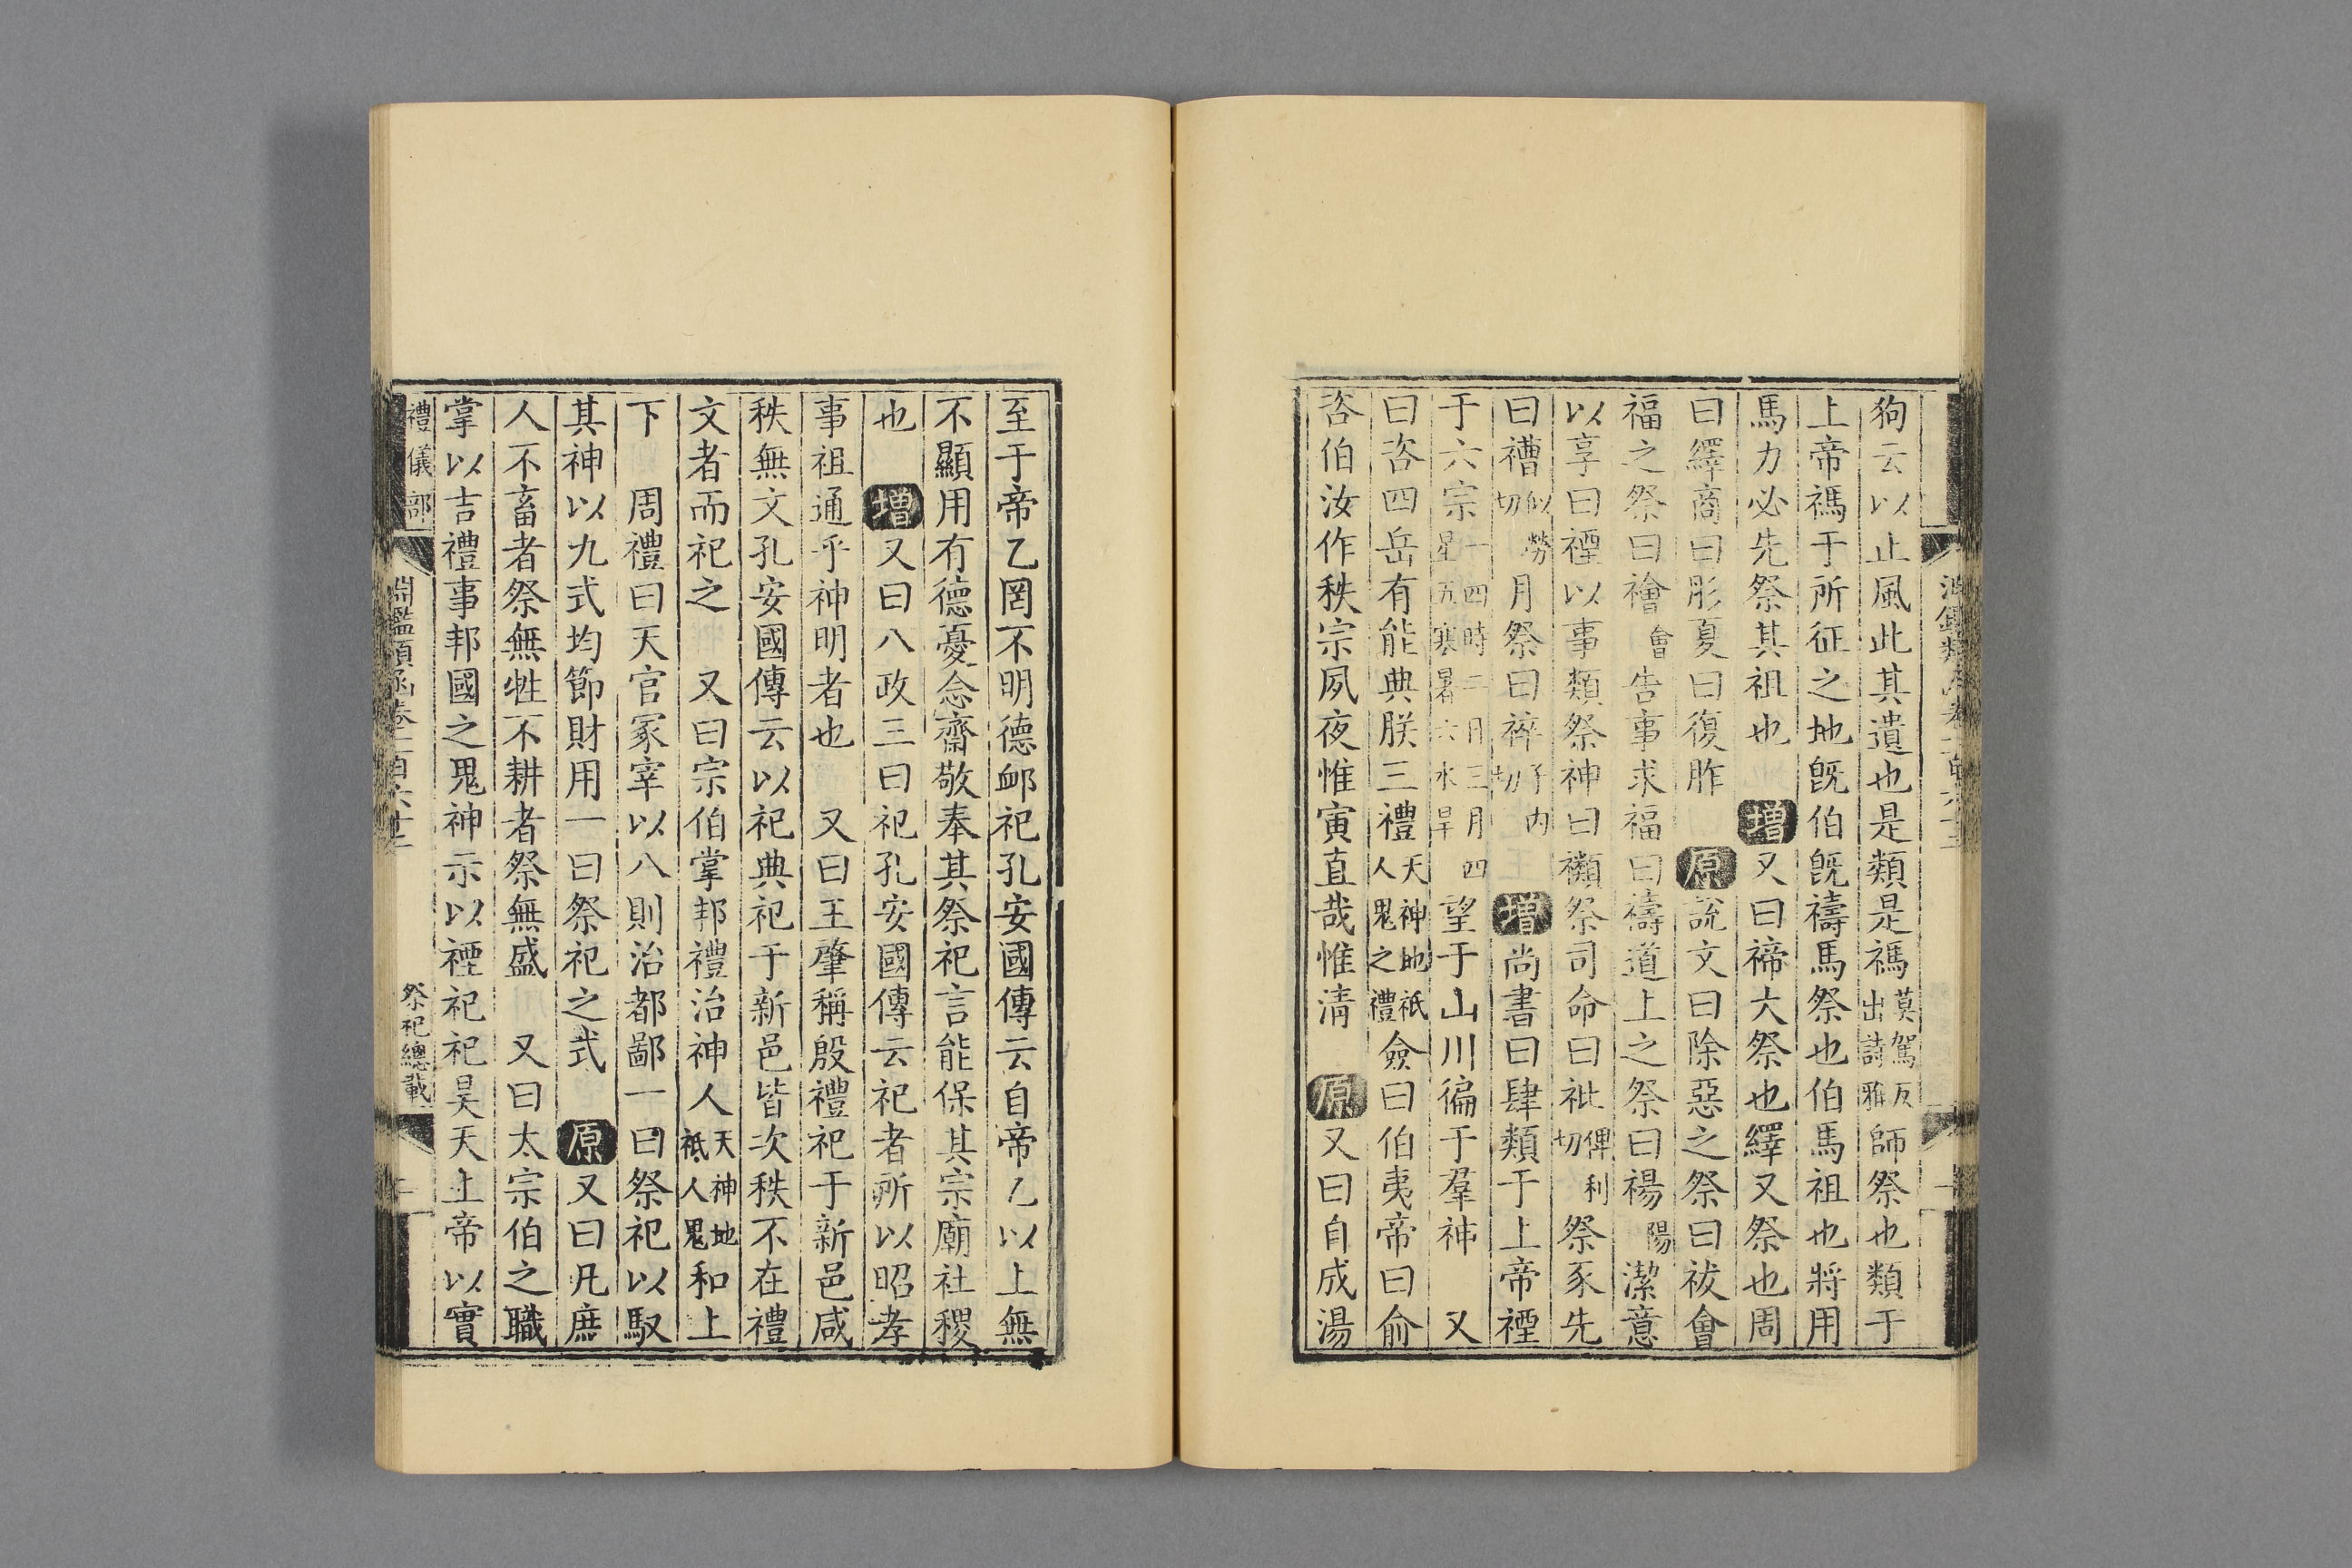 狗云以止風此其遺也是類是禡莫駕反出詩雅師祭也類于
上帝禡于所征之地旣伯旣禱馬祭也伯馬祖也將用
馬力必先祭其祖也增又曰禘大祭也繹又祭也周
曰繹商曰肜夏曰復胙原說文曰除惡之祭曰祓會
福之祭曰禬會告事求福曰禱道上之祭曰禓陽潔意
以享曰禋以事類祭神曰禷祭司命曰祉俾利切祭豕先
曰禮似勞切月祭曰禷子内切增尚書曰肆類于上帝禋
于六宗一四時二月三月四星五寒暑六水旱望于山川徧于羣神 又
曰咨四岳有能典朕三禮天神地祇人鬼之禮僉曰伯夷帝曰俞
咨伯汝作秩宗夙夜惟寅直哉惟淸原又曰自成湯
至于帝乙罔不明德卹祀孔安國傳云自帝乙以上無
不顯用有德憂念齋敬奉其祭祀言能保其宗廟社稷
也增又曰八政三曰祀孔安國傳云祀者所以昭孝
事祖通乎神明者也 又曰王肇稱殷禮祀于新邑咸
秩無文孔安國傳云以祀典祀于新邑皆次秩不在禮
文者而祀之 又曰宗伯掌邦禮治神人天神地祇人鬼和上
下 周禮曰天官冢宰以八則治都鄙一曰祭祀以馭
其神以九式均節財用一曰祭祀之式原又曰凡庶
人不畜者祭無牲不耕者祭無盛 又曰太宗伯之職
掌以吉禮事邦國之鬼神示以禋祀祀昊天上帝以實
禮儀部 淵鑑類函卷一百六十三 祭祀總載